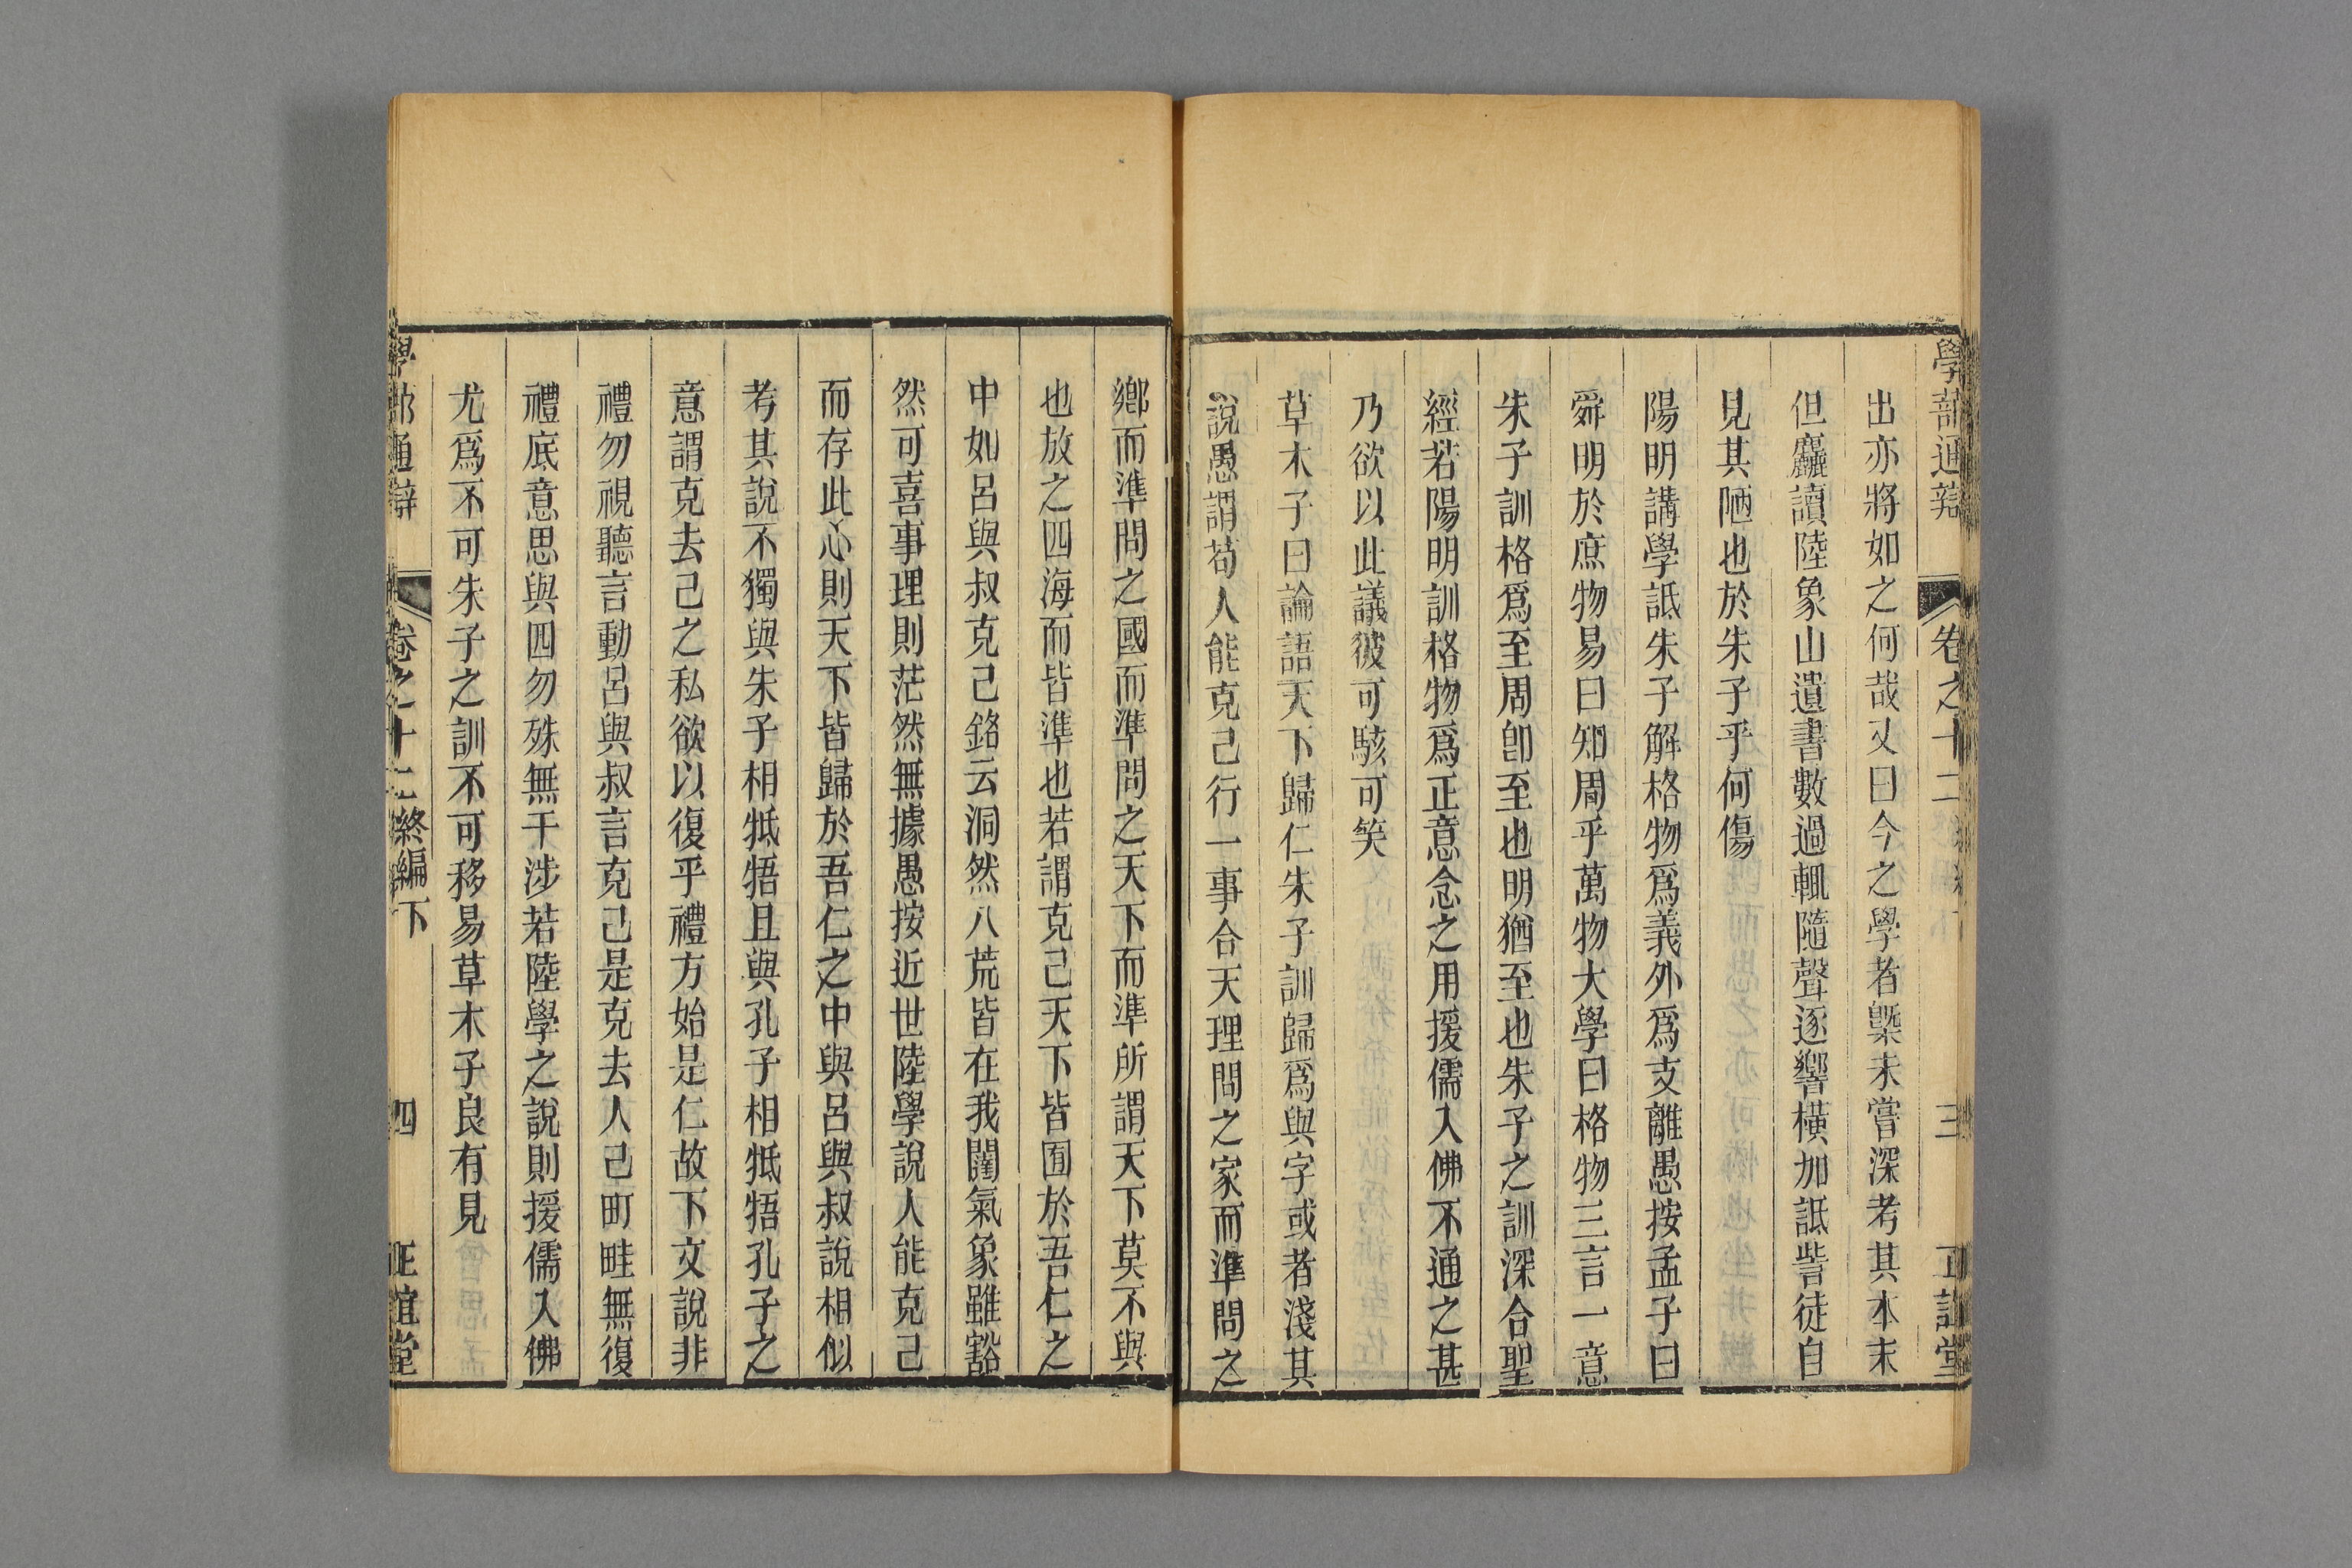 學蔀通辯 卷之十二 三 正誼堂
出亦將如之何哉又曰今之學者槩未嘗深考其本末
但麤讀陸象山遺書數過輒隨聲逐響橫加詆訾徒自
見其陋也於朱子乎何傷
陽明講學詆朱子解格物爲義外爲支離愚按孟子曰
舜明於庶物易曰知周乎萬物大學曰格物三言一意
朱子訓格爲至周卽至也明猶至也朱子之訓深合聖
經若陽明訓格物爲正意念之用援儒入佛不通之甚
乃欲以此議彼可駭可笑
草木子曰論語天下歸仁朱子訓歸爲與字或者淺其
說愚謂苟人能克己行一事合天理問之家而準問之
鄉而準問之國而準問之天下而準所謂天下莫不與
也放之四海而皆準也若謂克己天下皆囿於吾仁之
中如呂與叔克己銘云洞然八荒皆在我闥氣象雖豁
然可喜事理則茫然無據愚按近世陸學說人能克己
而存此心則天下皆歸於吾仁之中與呂與叔說相似
考其說不獨與朱子相牴牾且與孔子相牴牾孔子之
意謂克去己之私欲以復乎禮方始是仁故下文說非
禮勿視聽言動呂與叔言克己是克去人己町畦無復
禮底意思與四勿殊無干涉若陸學之說則援儒入佛
尤爲不可朱子之訓不可移易草木子良有見
學蔀通辯 卷之十二終編下 四 正誼堂